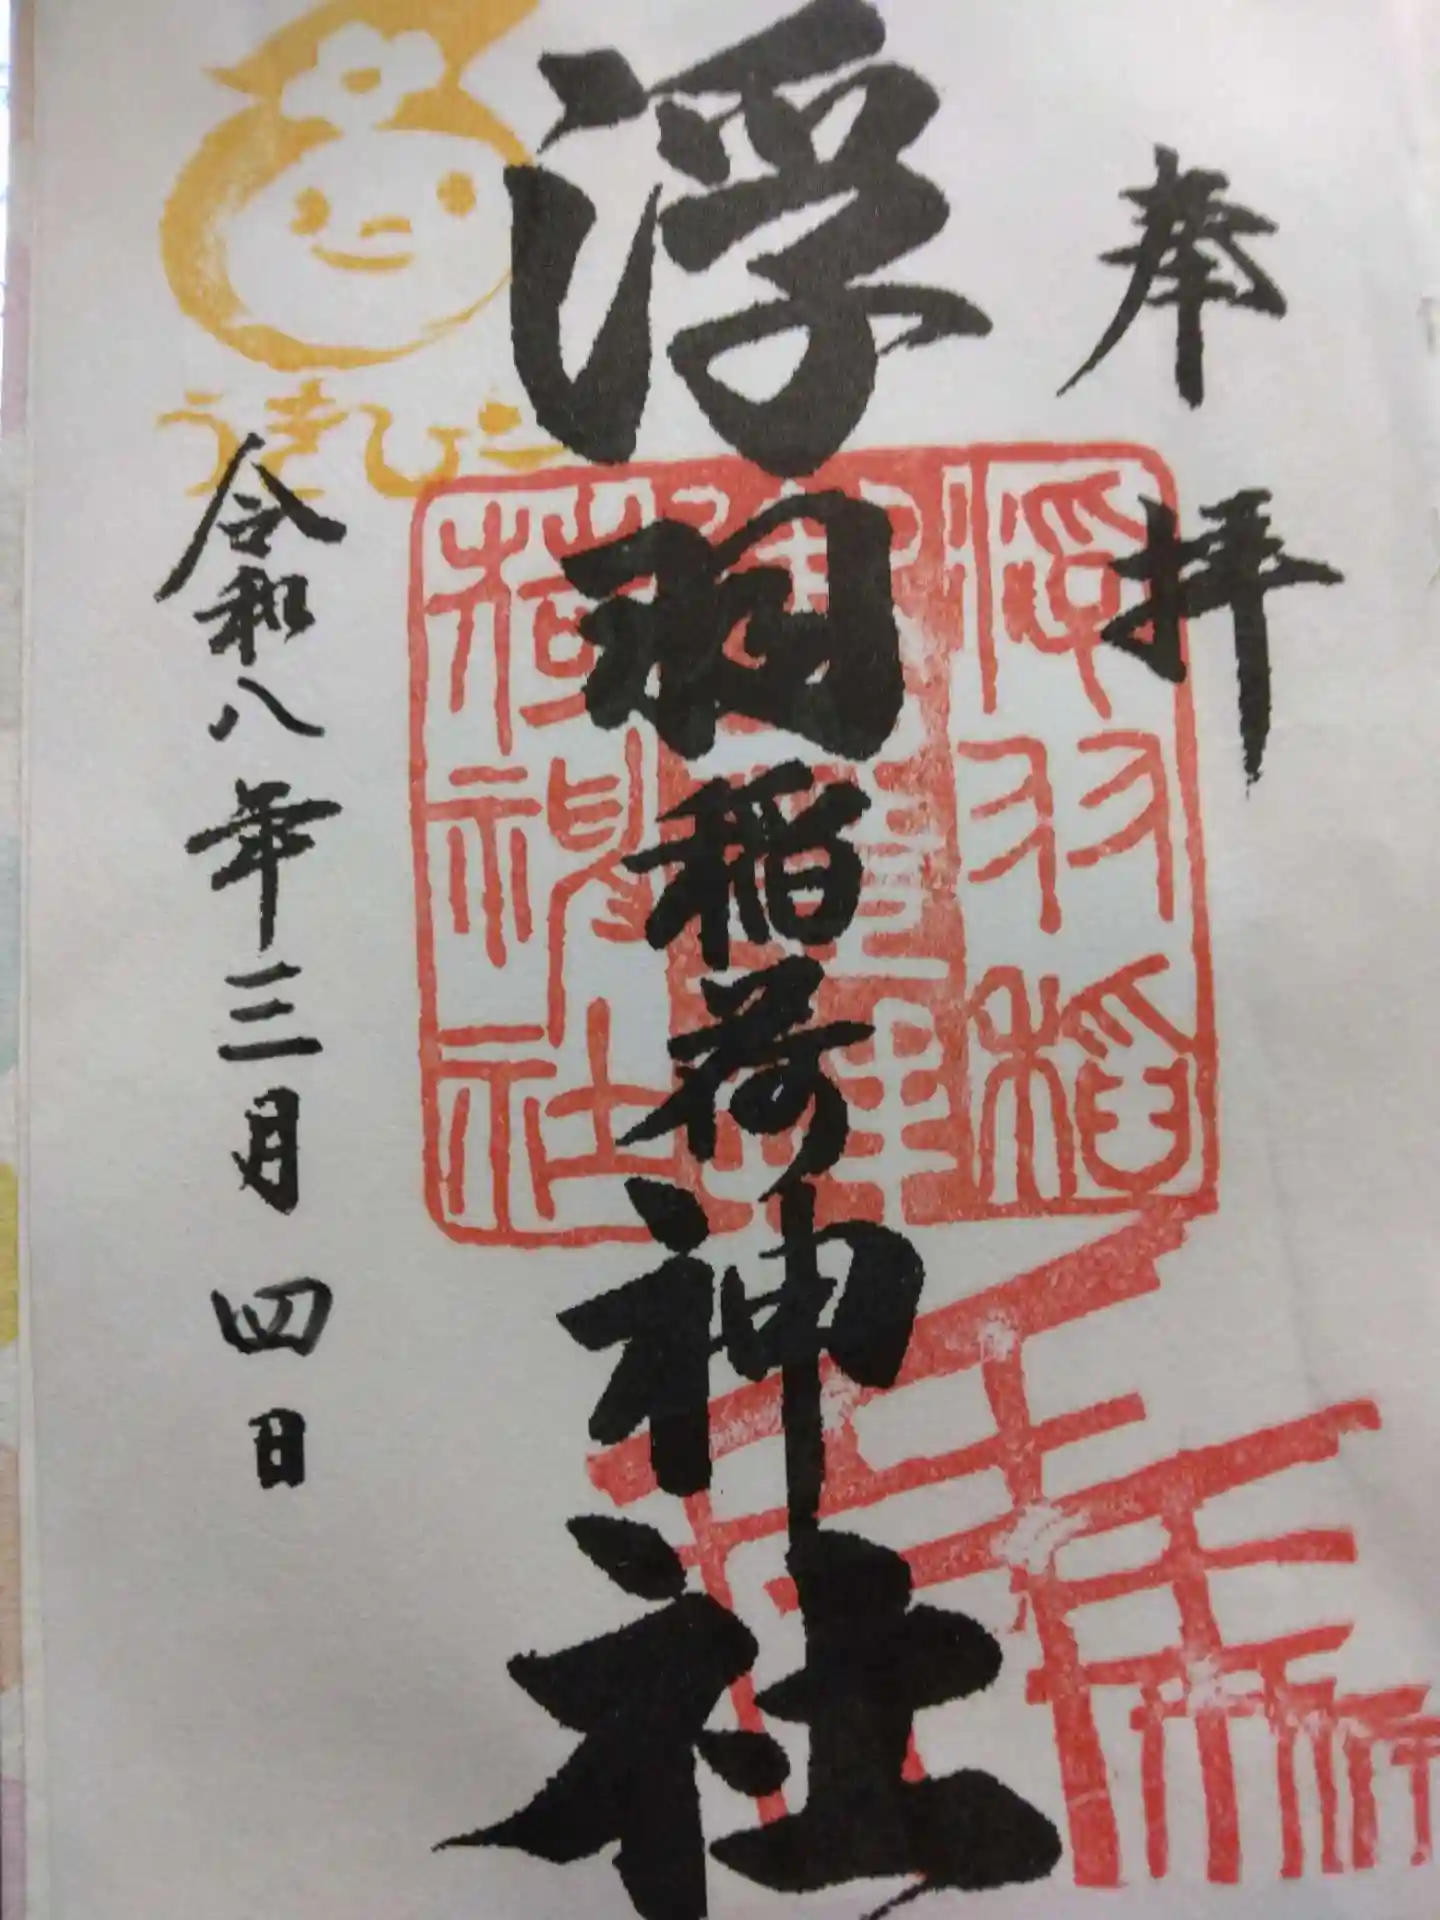 奉拝
浮羽稲荷神社
浮羽稲
荷神社
令和八年三月四日
うきぴー